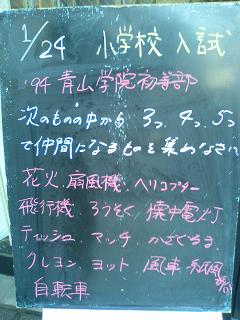 1/24 小学校 入試
'94 青山学院初等部
次のものの中から 3つ、4つ、5つ
で仲間になるものを集めなさい
花火 扇風機 ヘリコプター
飛行機 ろうそく 懐中電灯
ティッシュ マッチ かざぐるま
クレヨン ヨット 風車
自転車